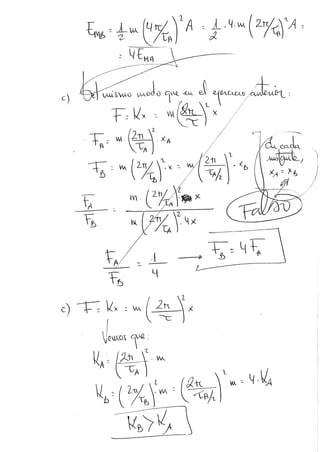 E_MB = 1/2 m (4π/τ_A)² A = 1/2 · 4 · m (2π/τ_A)² A =
= 4 E_MA
c) Del mismo modo que en el ejercicio anterior:
F = Kx = m (2π/τ)² x
F_A = m (2π/τ_A)² · x_A
F_B = m (2π/τ_B)² · x = m (2π/(τ_A/2))² · x_B
En cada
instante
x_A = x_B
F_A/F_B = m · (2π/τ_A)² · x / m (2π/τ_A)² · 4x
Falso
F_A/F_B = 1/4 → F_B = 4 F_A
c) F = Kx = m (2π/τ)² x
Vemos que:
K_A = (2π/τ_A)² · m
K_B = (2π/τ_B)² · m = (2π/(τ_A/2))² m = 4 · K_A
K_B > K_A